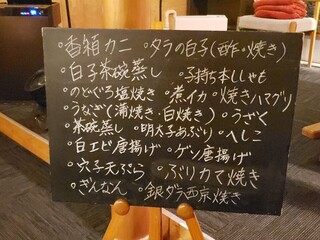 ・香箱カニ ・タラの白子(酢・焼き)
・白子茶碗蒸し ・子持ち本ししゃも
・のどぐろ塩焼き ・煮イカ ・焼きハマグリ
・うなぎ(蒲焼き・白焼き) ・うざく
・茶碗蒸し ・明太子あぶり ・へしこ
・白エビ唐揚げ ・ゲソ唐揚げ
・穴子天ぷら ・ぶりカマ焼き
・ぎんなん ・銀ダラ西京焼き